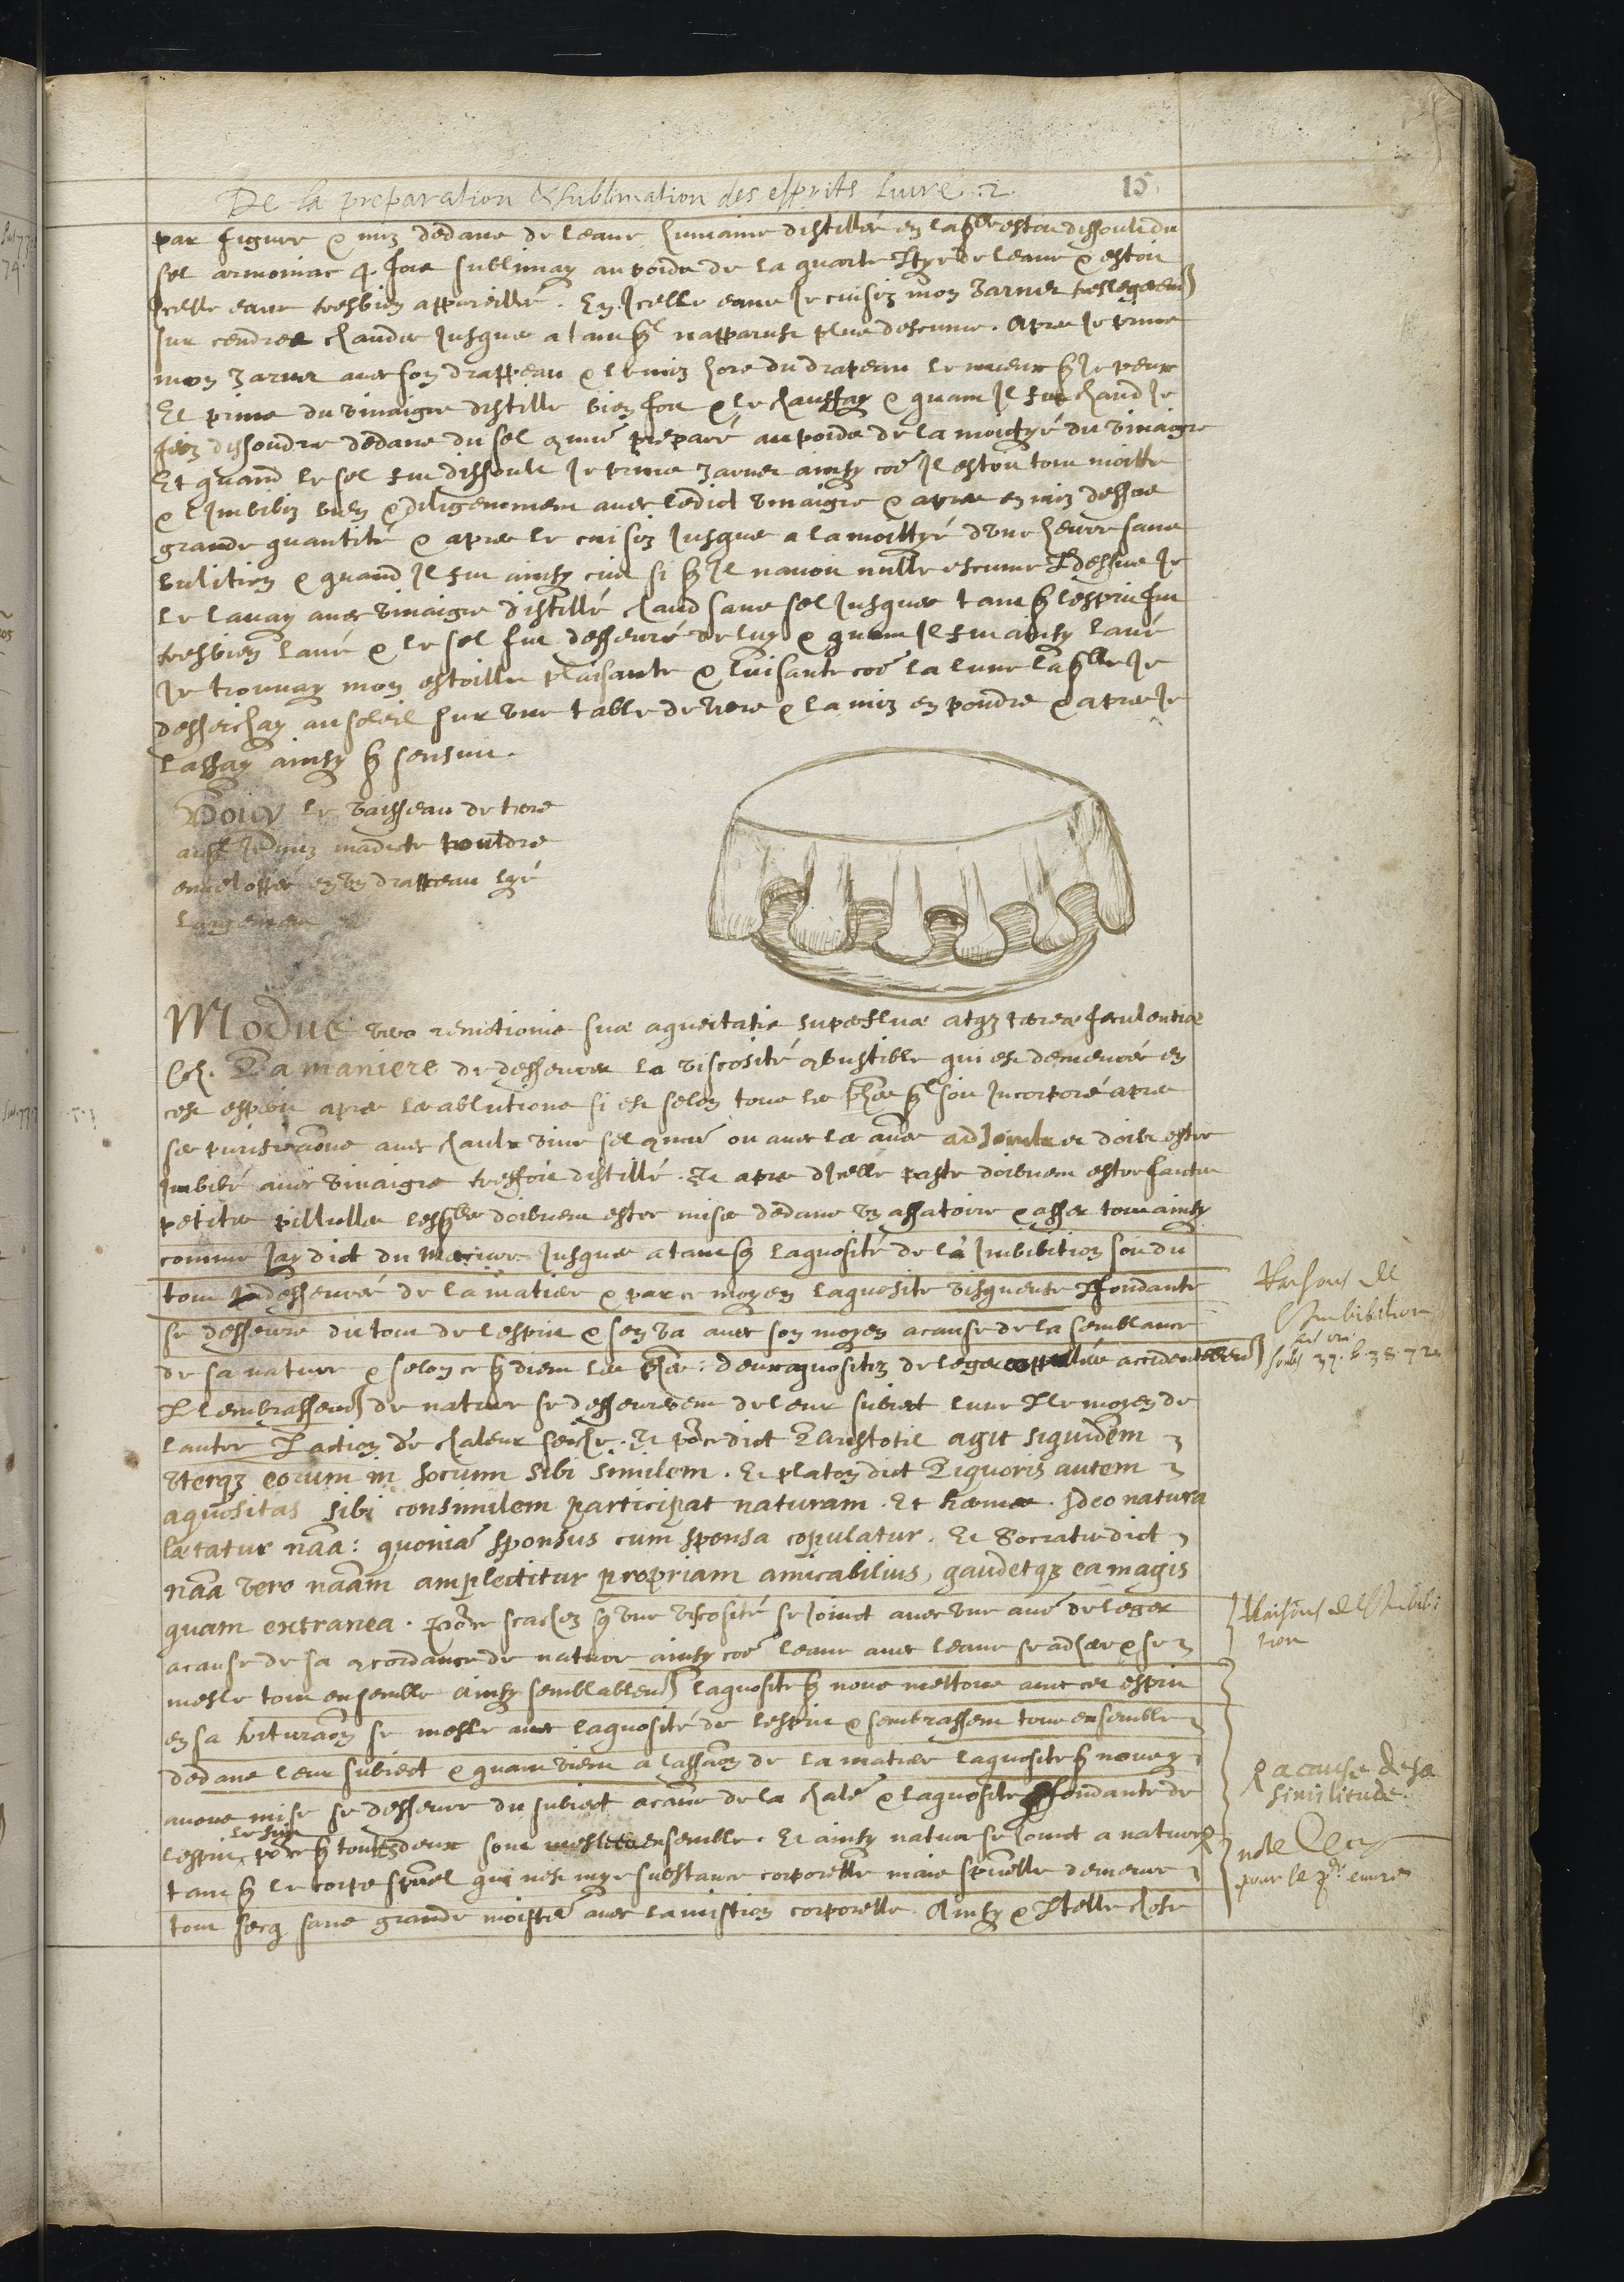 De la preparation & sublimation des esprits Livre .2. 15
par figure & mis dedans de leaue humaine distillée en laqlle estoit dissoult du
sel armoniac 4. fois sublimay au poids de la quarte ptye de leaue & estoit
Icelle eaue tresbien appareillé. En Icelle eaue Je cuisiz mon zarnet
sur cendres chaudes Jusques a tant ql napparust plus descume. Apres Je prins
mon zarnet avec son drappeau & le mis hors du drapeau le mieux q Je peux
Et prins du vinaigre distille bien fort & le chauffay & quant Il fut chaud Je
feiz dissoudre dedans du sel comu preparé au poids de la moictyé du vinaigre
Et quand le sel fut dissoult Je prins zarnet ainsy coe Il estoit tout moitte
& limbibiz bien & diligemment avec ledict vinaigre & apres en mis dessus
grande quantité & apres le cuisiz Jusques a la moittyé dune heure sans
bulition & quand Il fut ainsy cuit si q Il navoit nulle escume dessus Je
le lavay avec vinaigre distillé chaud sans sel Jusques tant q lesprit fut
tresbien lavé & le sel fut desseuré de luy & quant Il fut ainsy lavé
Je trouvay mon estoille plaisante & luisante coe la lune laqlle Je
desseichay au soleil sur une table de & la mis en poudre & apres Je
lassay ainsy q sensuit.
Voicy le vaisseau de terre
Je mis madicte pouldre
envelopper en un drappeau lyé
largement
Modus vero remotionis suæ aqueitatis superfluæ atq terreæ feculentiæ
La maniere de desseurer la viscosité cobustible qui est demeurée en
cest esprit apres les ablutions si est selon tous les phes ql soit Incorporé apres
ses purificaons avec chaulx vive sel comu ou avec les aues et doibt estre
Imbibé avec vinaigre tresfort distillé. Et apres dIcelle paste doibvent estre faictes
petites pillulles lesqlles doibvent estre mises dedans un assatoire & asser tout ainsy
comme Jay dict du Mercure Jusques a tant q laquosité de la Imbibition soit du
tout desseurée de la matiere & par ce moyen laquosite visqueuse & fondante
se desseure du tout de lesprit & sen va avec son moyen a cause de la semblance
de sa nature & selon ce q dient les phes: deux aquositez de leger accidentellem
& embrassem de nature se desseurent de leur subiect lune & le moyen de
lautre & action de chaleur seiche. Et pour ce dict LAristotil agit siquidem
Vterq eorum in socium sibi similem. Et platon dict Liquoris autem
aquositas sibi consimilem participat naturam. Et hermes. Ideo natura
lætatur naa: quonia sponsus cum sponsa copulatur. Et Socrates dict
naa vero naam amplectitur propriam amicabilius, gaudetq ea magis
quam extranea. Pour ce scachez q une viscosité se Joinct avec une aue de leger
a cause de sa cocordance de nature ainsy coe leaue avec leaue se adhere & se
mesle tout ensemble ainsy semblablem laquosite q nous mettons avec cest esprit
en sa trituraon se mesle avec laquosité de lesprit & sembrassent tous ensemble
dedans leur subiect & quant vient a lassaon de la matiere laquosite q nous y
avons mise se desseure du subiect a cause de la chale & laquosite fondante de
lesprit le suit pour ce q toutes deux sont meslees ensemble. Et ainsy nature se Joinct a nature
tant q le corps spuel qui nest mye substance corporelle mais spuelle demeure
tout secq sans grande moisteur avec la mistion corporelle. Ainsy & telle chose
Raisons de
l Imbibition
37. b. 38. 72
Raisons de l Imbibi
tion
& a cause de sa
similitude.
note
pour le